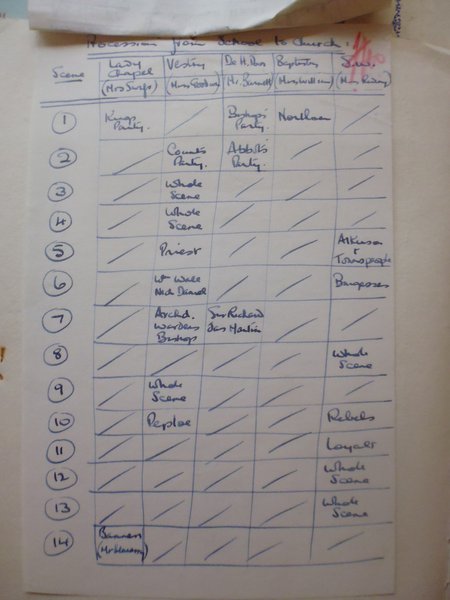 Procession from School to Church.
Scene Lady Chapel Vestry Baptistry S.W.
(Mrs (Mrs Mr. Burnett (Mrs William) (Mrs
1 Kings Party. / Bishop's Party. Northern /
2 / Count's Party. Abbot's Party. / /
3 / Whole Scene / / /
4 / Whole Scene / / /
5 / Priest / / Atkinson + Townspeople
6 / Wm Wale Nich Daniel / / Burgesses
7 / Archd. Wardens Bishop Sir Richard Jas Martin / /
8 / / / / Whole Scene
9 / Whole Scene / / /
10 / Peploe / / Rebels
11 / / / /
12 / / / / Whole Scene
13 / / / / Whole Scene
14 Banners (Mr / / / /